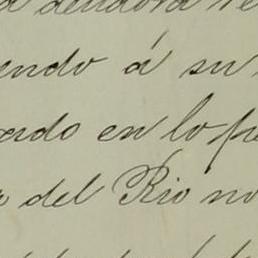 a deudora re
endo á su
ado en lo pe
a del Rio no